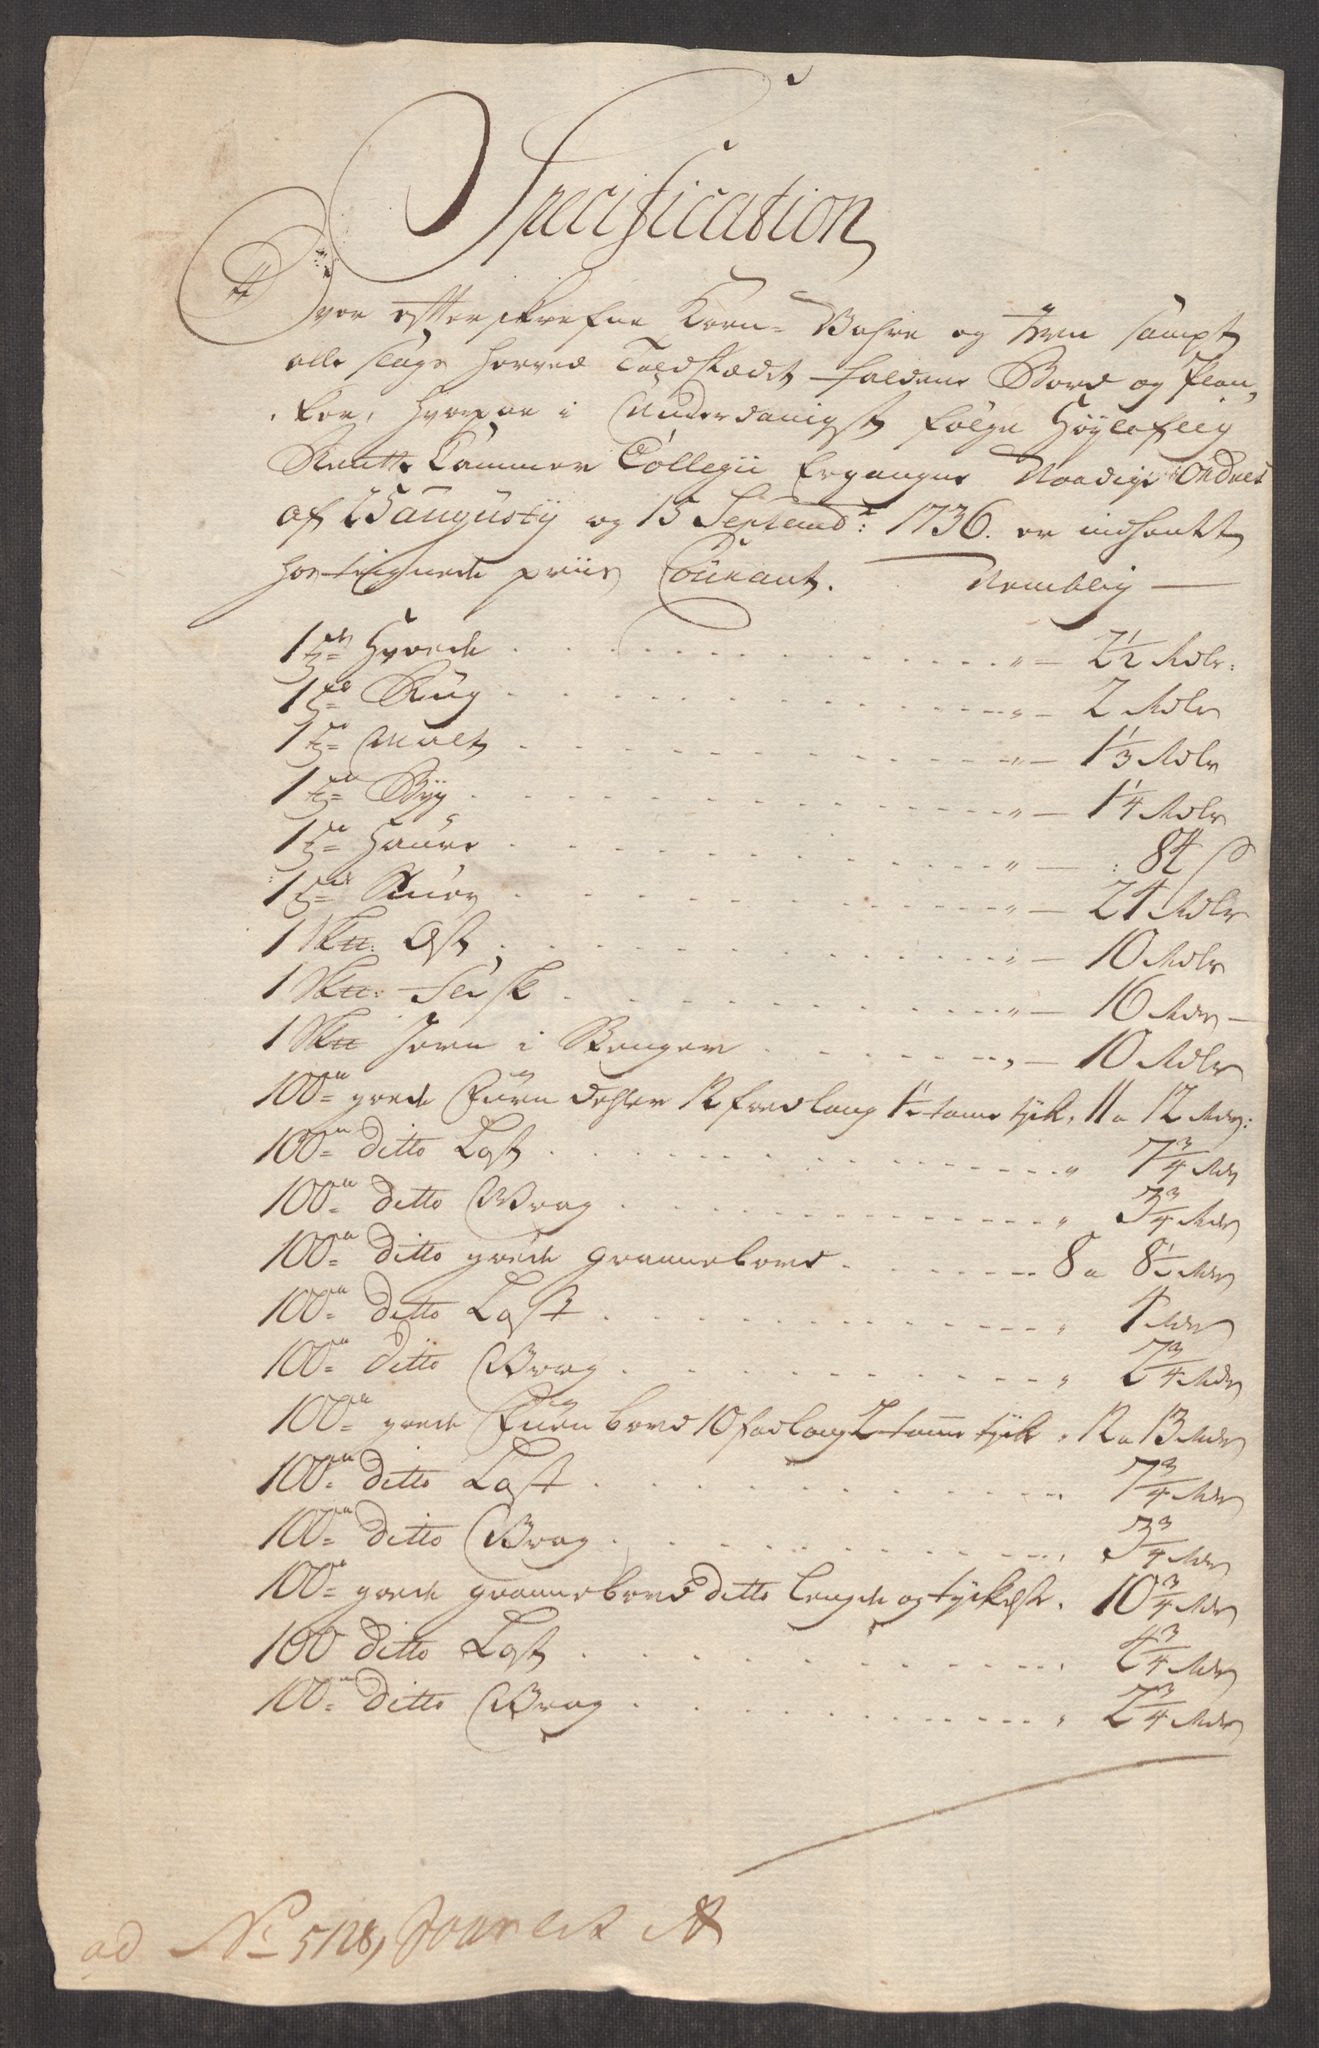 Specification
Over efterskrefne Korn- Vahre og Iern sampt
alle slags herved Toldstædet faldene Bord og Plan-
-ker, hvorpaa i Underdanigst følge Høylofl
Rentte Cammer Collegii Ergangne Naadige Ordres
af 25 augustij og 15 Septembr: 1736. er indhentet
hostegnede priis Courant. Nemblig
1 tde Hvede . . . " — 2½ Rdlr:
1 tde Rug . . . " — 2 Rdlr
1 tde Malt . . . " — 1⅓ Rdlr
1 tde Byg . . . " — 1¼ Rdlr
1 tde Haure . . . " — : 84 ß
1 tde Smør . . . " — 24 Rdlr
1 Sk℔. Ost . . . " — 10 Rdlr
1 Sk℔. . . . " — 16 Rdr —
1 Sk℔ Jern i Stenger . . . " — 10 Rdlr
100de goede Furu dehler 12 foed lang 1½ tome tyk, 11 a 12 Rdr:
100de ditto Last . . . " 7¾ Rdr
100de ditto Vrag . . . " 3¾ Rdr
100de ditto goede granne bord . . . 8 a 8½ Rdr
100de ditto Last . . . " 4 Rdr
100de ditto Vrag . . . " 2¾ Rdr
100de goede Furu bord 10 fod lang 2 tome tyk . 12 a 13 Rdr
100de ditto Last . . . 7¾ Rdr
100de ditto Vrag . . . 3¾ Rdr
100de goede granne bord ditto lengde og tykelse . 10¾ Rdr
100 ditto Last . . . 4¾ Rdr
100de ditto Vrag . . . " 2¾ Rdr
ad No 5128,